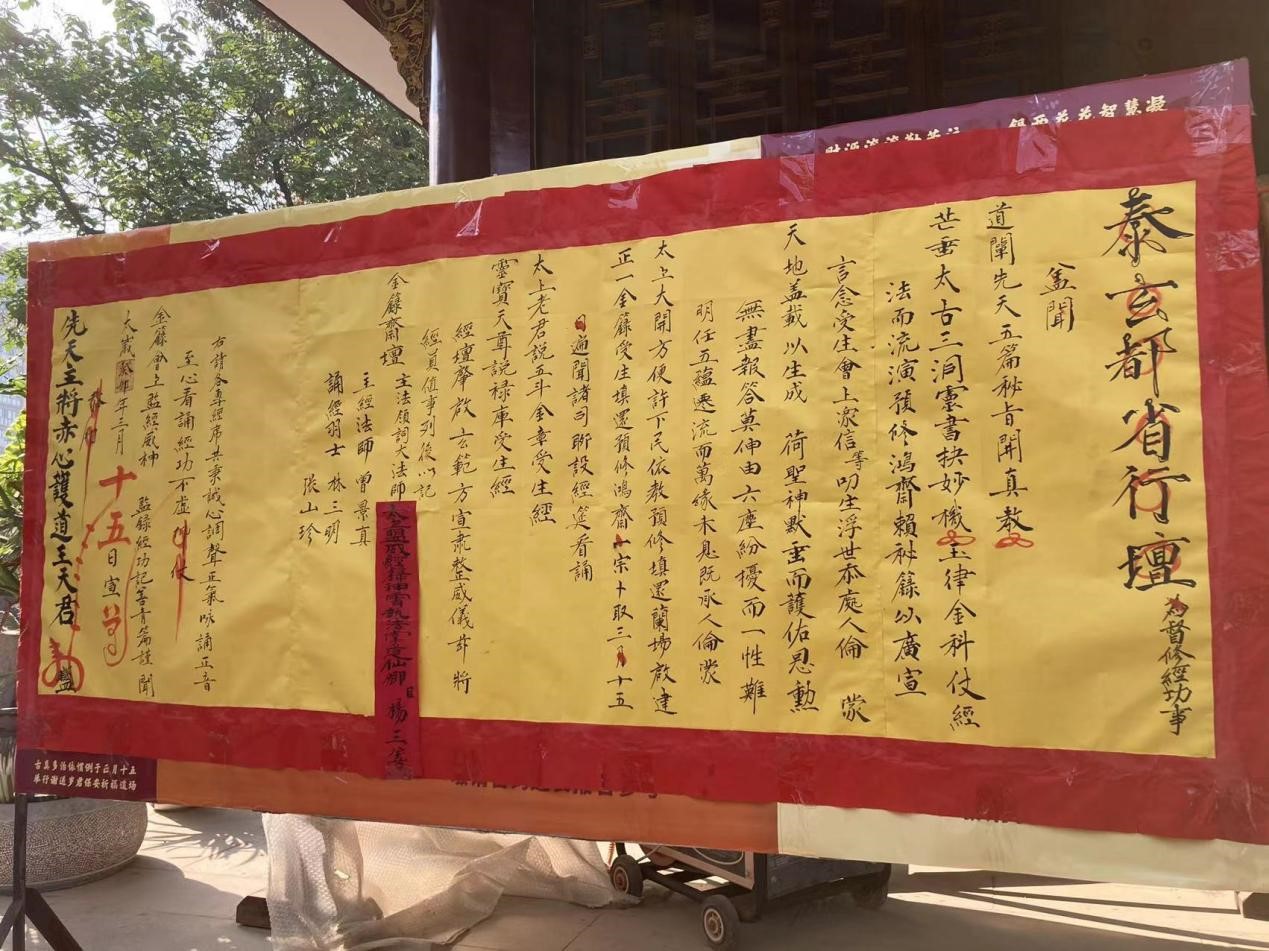 泰玄都省行壇
為督修經功事
盖聞
道闡先天五篇秘旨開真教
芒垂太古三洞靈書抉妙機玉律金科仗經
法而流演預修鴻齋賴秘籙以廣宣
言念受生會上眾信等叨生浮世忝處人倫 蒙
天地盖載以生成 荷聖神默垂而護佑恩勳
無盡報答莫伸由六塵紛擾而一性難
明任五蘊遷流而萬緣未息既承人倫
太上大開方便許下民依教預修填還蘭場啟建
正一金籙受生填還預修鴻齋一宗卜取三月十五
日遍聞諸司所設經筵看誦
太上老君説五斗金章受生經
靈寶天尊説祿庫受生經
經壇肇啟玄範方宣肅整威儀
經員值事列後以記
金籙齋壇 主法領詞大法師
楊三等
主經法師 曾景真
誦經羽士 林三明
張山珍
右請各尊經席共秉誠心調聲正氣咏誦正音
至心看誦經功不虚
金籙會上監經威神 監錄經功記善青篇謹聞
太歲年三月十五日宣
先天主將赤心護道王天君
智慧凝
古真多治依慣例于正月十五
舉行謝送歲君保安祈福道場